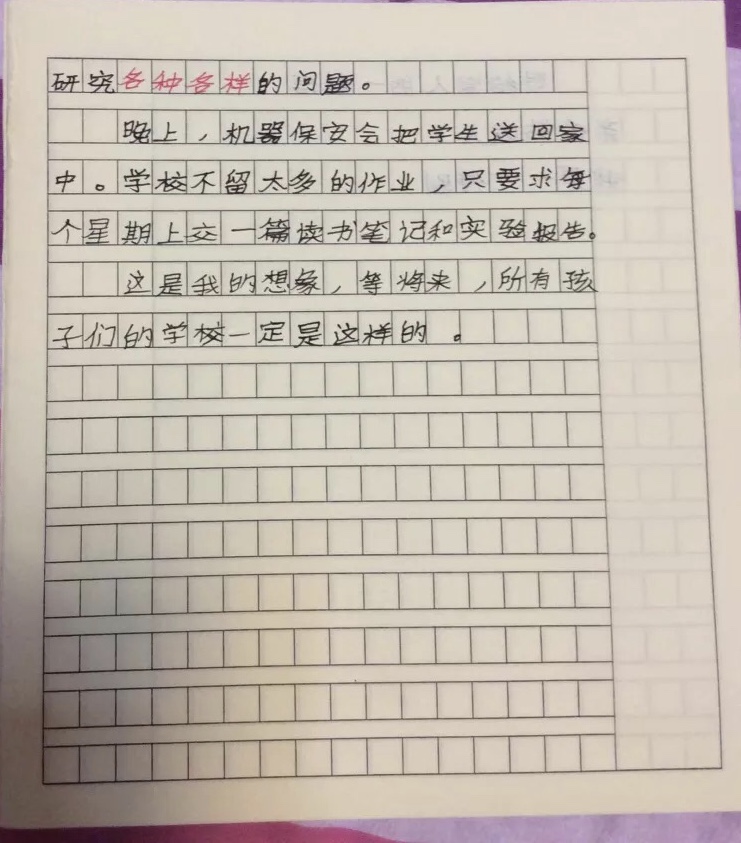 研究各种各样的问题。
晚上，机器保安会把学生送回家
中。学校不留太多的作业，只要求每
个星期上交一篇读书笔记和实验报告。
这是我的想象，等将来，所有孩
子们的学校一定是这样的。